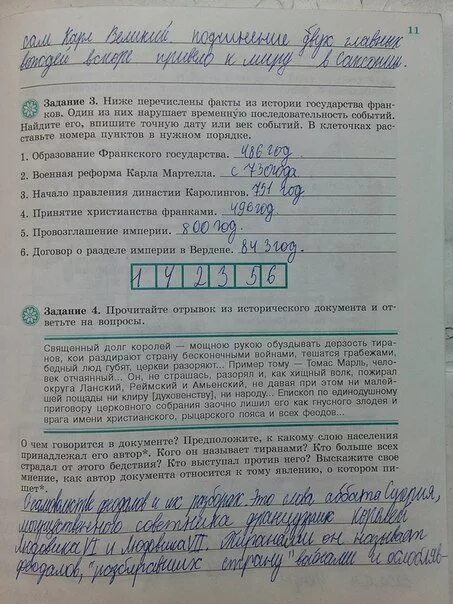 11
сам Карл Великий, подчинение двух главных
вождей вскоре привело к миру в Саксонии.
Задание 3. Ниже перечислены факты из истории государства фран-
ков. Один из них нарушает временную последовательность событий.
Найдите его, впишите точную дату или век событий. В клеточках рас-
ставьте номера пунктов в нужном порядке.
1. Образование Франкского государства. 486 год.
2. Военная реформа Карла Мартелла. с 730 года
3. Начало правления династии Каролингов. 751 год
4. Принятие христианства франками. 496 год.
5. Провозглашение империи. 800 год.
6. Договор о разделе империи в Вердене. 843 год.
1 4 2 3 5 6
Задание 4. Прочитайте отрывок из исторического документа и от-
ветьте на вопросы.
Священный долг королей — мощною рукою обуздывать дерзость тира-
нов, кои раздирают страну бесконечными войнами, тешатся грабежами,
бедный люд губят, церкви разоряют... Пример тому — Томас Марль, чело-
век отчаянный... Он, не страшась, разорял и, как хищный волк, пожирал
округа Ланский, Реймский и Амьенский, не давая при этом ни малей-
шей пощады ни клиру [духовенству], ни народу... Епископ по единодушному
приговору церковного собрания заочно лишил его как гнусного злодея и
врага имени христианского, рыцарского пояса и всех феодов...
О чем говорится в документе? Предположите, к какому слою населения
принадлежал его автор*. Кого он называет тиранами? Кто больше всех
страдал от этого бедствия? Кто выступал против него? Выскажите свое
мнение, как автор документа относится к тому явлению, о котором пи-
шет*.
О самовластье феодалов и их раздорах. Это слова аббата Сугерия,
могущественного советника французских королей
Людовика VI и Людовика VII. Тиранами он называет
феодалов, "раздиравших страну" войнами и ослабляв-